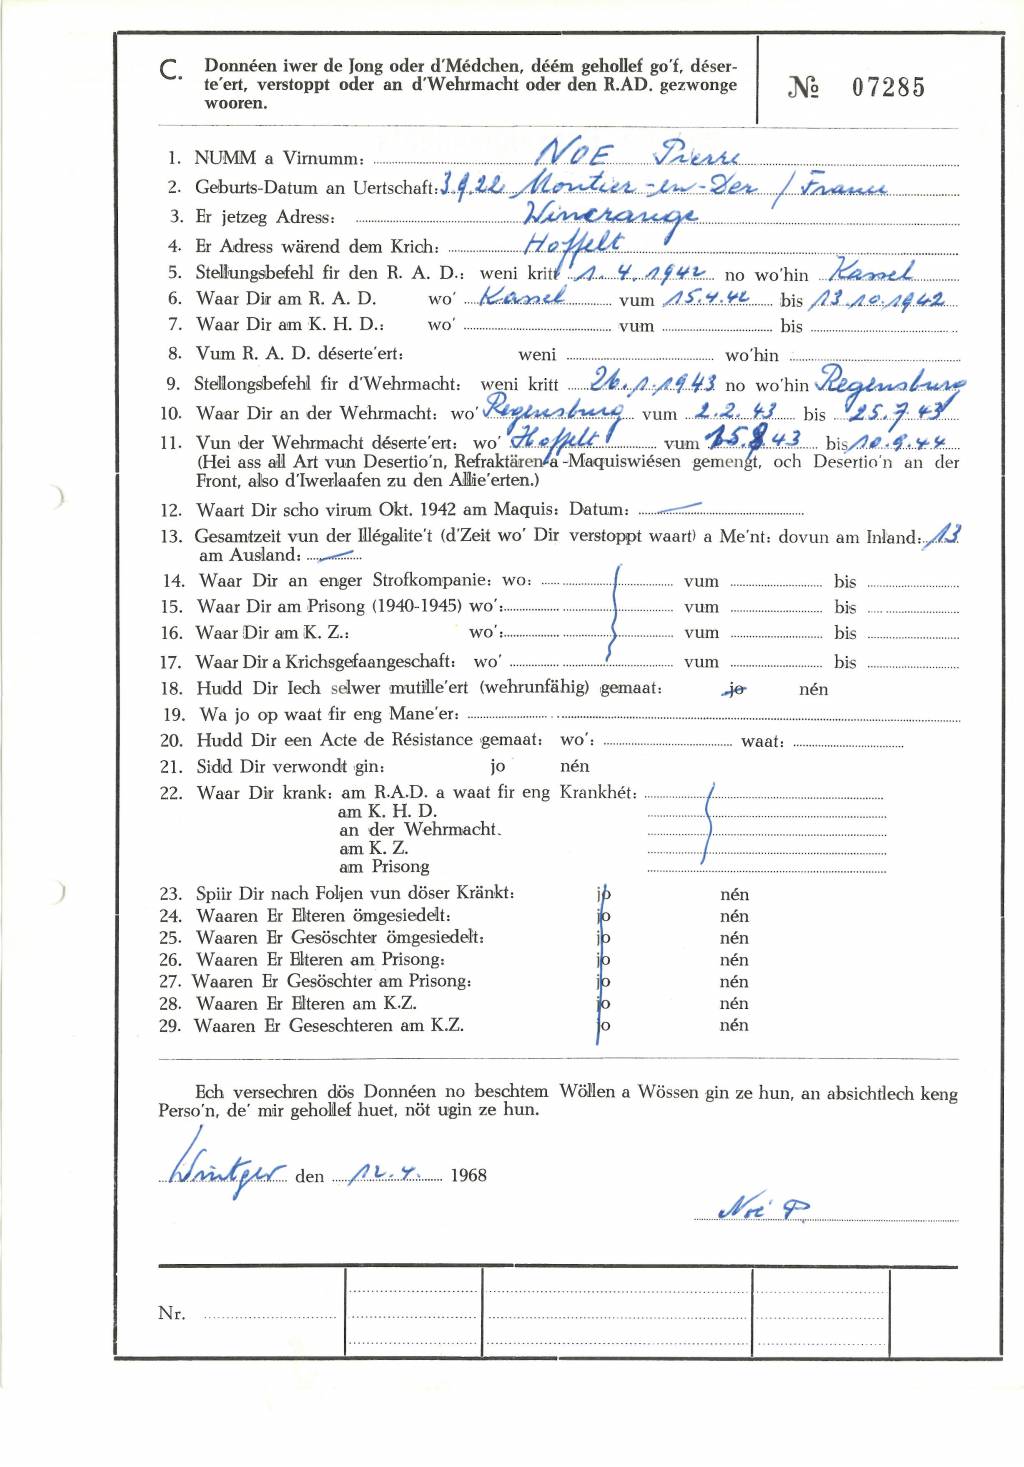 C. Donnéen iwer de Jong oder d'Médchen, déém gehollef go'f, déser-
te'ert, verstoppt oder an d'Wehrmacht oder den R.AD. gezwonge
wooren.
№ 07285
1. NUMM a Virnumm: NOE Pierre
2. Geburts-Datum an Uertschaft: 3.9.22 Montier-en-Der / France
3. Er jetzeg Adress: Wincrange
4. Er Adress wärend dem Krich: Hoffelt
5. Stellungsbefehl fir den R. A. D.: weni kritt 1. 4. 1942 no wo'hin Kassel
6. Waar Dir am R. A. D. wo' Kassel vum 15.4.42 bis 13.10.1942
7. Waar Dir am K. H. D.: wo' vum bis
8. Vum R. A. D. déserte'ert: weni wo'hin
9. Stellongsbefehl fir d'Wehrmacht: weni kritt 26.1.1943 no wo'hin Regensburg
10. Waar Dir an der Wehrmacht: wo' Regensburg vum 2.2.43 bis 25.7.43
11. Vun der Wehrmacht déserte'ert: wo' Hoffelt vum 15.8.43 bis 10.9.44
(Hei ass all Art vun Desertio'n, Refraktären a -Maquiswiésen gemengt, och Desertio'n an der
Front, also d'Iwerlaafen zu den Allie'erten.)
12. Waart Dir scho virum Okt. 1942 am Maquis: Datum: —
13. Gesamtzeit vun der Illégalite't (d'Zeit wo' Dir verstoppt waart) a Me'nt: dovun am Inland: 13
am Ausland: —
14. Waar Dir an enger Strofkompanie: wo: vum bis
15. Waar Dir am Prisong (1940-1945) wo': vum bis
16. Waar Dir am K. Z.: wo': vum bis
17. Waar Dir a Krichsgefaangeschaft: wo' vum bis
18. Hudd Dir Iech selwer mutille'ert (wehrunfähig) gemaat: jo nén
19. Wa jo op waat fir eng Mane'er:
20. Hudd Dir een Acte de Résistance gemaat: wo': waat:
21. Sidd Dir verwondt gin: jo nén
22. Waar Dir krank: am R.A.D. a waat fir eng Krankhét:
am K. H. D.
an der Wehrmacht.
am K. Z.
am Prisong
23. Spiir Dir nach Foljen vun döser Kränkt: jo nén
24. Waaren Er Elteren ömgesiedelt: jo nén
25. Waaren Er Gesöschter ömgesiedelt: jo nén
26. Waaren Er Elteren am Prisong: jo nén
27. Waaren Er Gesöschter am Prisong: jo nén
28. Waaren Er Elteren am K.Z. jo nén
29. Waaren Er Geseschteren am K.Z. jo nén
Ech versechren dös Donnéen no beschtem Wöllen a Wössen gin ze hun, an absichtlech keng
Perso'n, de' mir gehollef huet, nöt ugin ze hun.
Wintger den 12.4. 1968
Noé P
Nr.